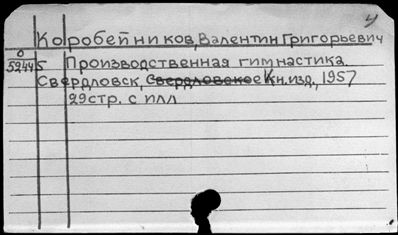 4
Коробейников, Валентин Григорьевич
0
5244б Производственная гимнастика.
Свердловск, Свердловское Кн. изд., 1957
29 стр. с илл